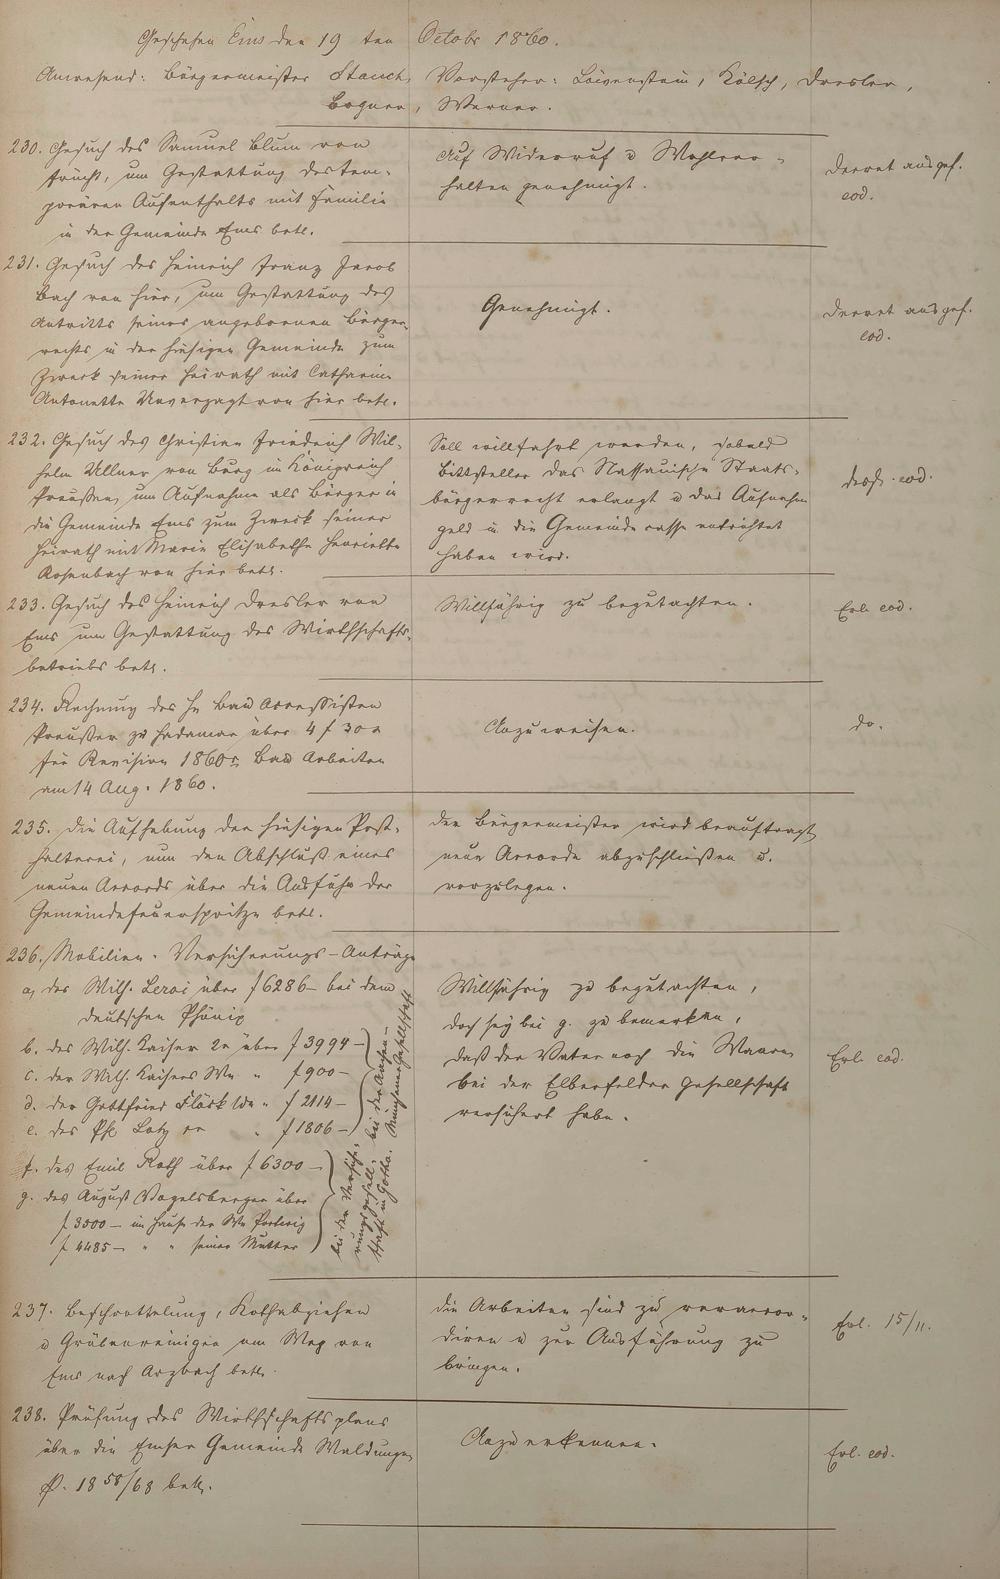 Geschehen Ems den 19 ten Octobr 1860.
Anwesend: Bürgermeister Stauch, Vorsteher: Löwenstein, Kölsch, Dresler,
Bogner, Werner.
230. Gesuch des Samuel Blum von
Frücht, um Gestattung des tem-
porären Aufenthalts mit Familie
in der Gemeinde Ems betr.
Auf Widerruf u Wohlver-
halten genehmigt.
Decret ausgef.
eod.
231. Gesuch des Heinrich Franz Jacob
Bach von hier, um Gestattung des
Antritts seines angebornen Bürger-
rechts in der hiesigen Gemeinde zum
Zweck seiner Heirath mit Catharine
Antonette Unverzagt von hier betr.
Genehmigt.
Decret ausgef.
eod.
232. Gesuch des Christian Friedrich Wil-
helm Ullner von Burg im Königreich
Preußen, um Aufnahme als Bürger in
die Gemeinde Ems zum Zweck seiner
Heirath mit Marie Elisabethe Henriette
Rosenbach von hier betr.
Soll willfahrt werden, sobald
Bittsteller das Nassauische Staats-
bürgerrecht erlangt u das Aufnahm
geld in die Gemeindecasse entrichtet
haben wird.
desgl. eod.
233. Gesuch des Heinrich Dresler von
Ems um Gestattung des Wirthschafts-
betriebs betr.
Willfährig zu begutachten.
Erl. eod.
234. Rechnung des H. Bau Accessisten
Preußer zu Hadamar über 4 f 30 x
für Revision 1860r Bau Arbeiten
am 14 Aug. 1860.
Anzuweisen.
do.
235. Die Aufhebung der hiesigen Post-
halterei, nun den Abschluß eines
neuen Accords über die Ausfuhr der
Gemeindefeuerspritze betr.
Der Bürgermeister wird beauftragt
neue Accorde abzuschließen u.
vorzulegen.
236. Mobilien-Versicherungs-Anträge
a, des Wilh. Leroi über f 6286- bei dem
deutschen Phönix
b. des Wilh. Kaiser 2r über f 3994-
c. der Wilh. Kaisers Ww " f 900-
d. der Gottfried Flöck " f 2114-
e. des Ph. Lotz " f 1806-
bei der Aachen-
Münchner Gesellschaft
f. des Emil Roth über f 6300-
g. des August Vogelsberger über
f 3500- im Hause der Ww
f 4485- " " seiner Mutter
bei der Versiche-
rungsgesell-
schaft in Gotha.
Willfährig zu begutachten,
doch sey bei g. zu bemerken,
daß der Vater noch die Waaren
bei der Elberfelder Gesellschaft
versichert habe.
Erl. eod.
237. Beschrottelung, Kothabziehen
u Gräbenreinigen am Weg von
Ems nach Arzbach betr.
Die Arbeiten sind zu veraccor-
diren u zur Ausführung zu
bringen.
Erl. 15/11.
238. Prüfung des Wirthschaftsplans
über die Emser Gemeinde Waldungen
p. 1858/68 betr.
Anzuerkennen.
Erl. eod.